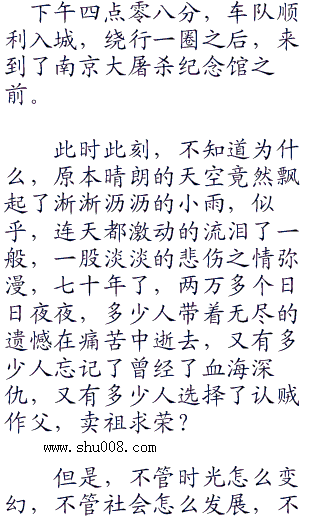 下午四点零八分，车队顺
利入城，绕行一圈之后，来
到了南京大屠杀纪念馆之
前。
此时此刻，不知道为什
么，原本晴朗的天空竟然飘
起了淅淅沥沥的小雨，似
乎，连天都激动的流泪了一
般，一股淡淡的悲伤之情弥
漫，七十年了，两万多个日
日夜夜，多少人带着无尽的
遗憾在痛苦中逝去，又有多
少人忘记了曾经了血海深
仇，又有多少人选择了认贼
作父，卖祖求荣？
www.shu008.com
但是，不管时光怎么变
幻，不管社会怎么发展，不